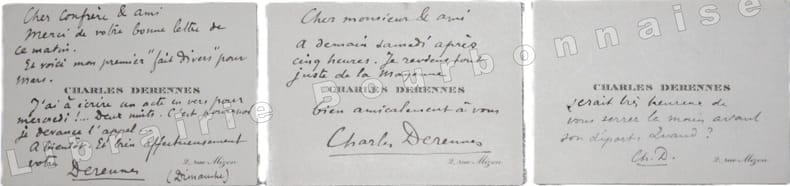 Cher Confrère & ami
Merci de votre bonne lettre de
ce matin.
Et voici mon premier "fait divers" pour
mars.
CHARLES DERENNES
J'ai à écrire un acte en vers pour
mercredi !... Deux nuits. C'est pourquoi
je devance l'appel.
A bientôt. Et très affectueusement
votre
Derennes
(Dimanche)
2, rue Mizon
Cher monsieur & ami
A demain samedi après
cinq heures. Je reviens tout
juste de la Mayenne.
CHARLES DERENNES
bien amicalement à vous
Charles Derennes
2, rue Mizon
CHARLES DERENNES
serait très heureux de
vous serrer la main avant
son départ. Quand ?
Ch. D.
2, rue Mizon
Librairie Bourbonnaise